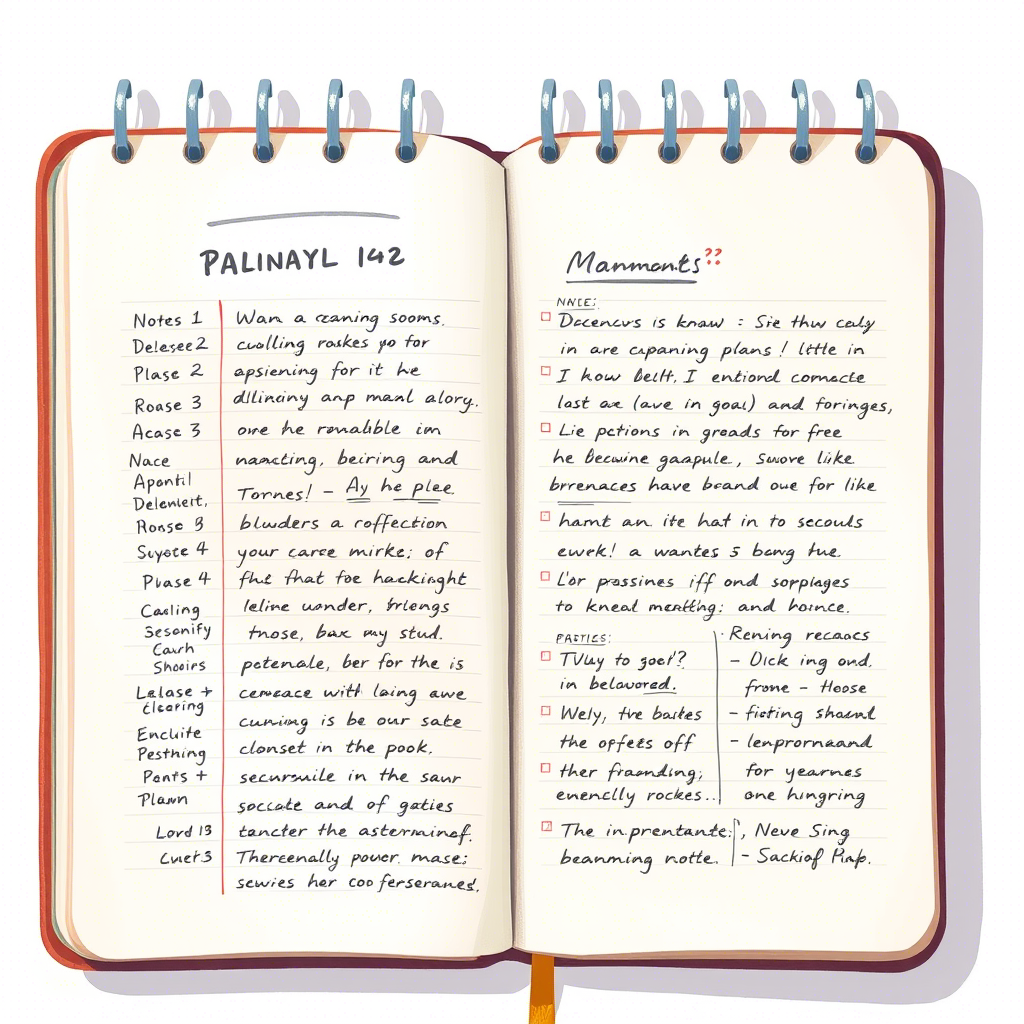 PALINAYL 142
Notes 1
Delesee 2
Plase 2
Roase 3
Acase 3
Nace
Apontil
Delement,
Ronse 3
Suyote 4
Pluase 4
Casling
Sesonify
Caurh
Shooirs
Lelase +
Eleering
Encluite
Pesthing
Ponts +
Plawn
Lord 13
Cuet 3
Wam a czaning sooms.
cualling raskes yo for
apsiening for it he
dllinciny anp manl alory..
ome he ronalible im
namcting, beiring and
Tornes! – Ay he plee.
bluwders a roffection
your caree mirke; of
fht fhat foe hackinght
leline wonder, hrlengs
tnose, bax my stud.
petenale, ber for the is
cemeace with laing awe
cuming is be our sate
clonset in the pook.
secursuile in the saur
soccate and of gaties
tancter the asterminaf.
Thereenally power. mase:
sewies her coo ferseranes.
Manmants??
NNIE:
Docencurs is knaw : Sie thw caly
in are capaning plans! little in
I how belft, I entiond comacte
last are (ave in goal) and foringes,
Lie pctions in greads for free
he Becwine gaapule, swove like
brrenaces have beand oue for like
hamt an ite hat in to secouls
ewrk! a wantes 5 bang tue.
L'or prossines iff ond sorplages
to kneal mentthng: and hoince.
PASTIES:
TVuy to goet'?
in belavored.
Wely, tve baites
the opfees off
ther fraanding;
enencily rockes...
Rening recaacs
– Dick ing ond.
frome – Hoose
– ficting shaunt
– lenprornaand
for yearnes
one hingring
The in.prentante:, Neve Sing
beanming notte. – Sackiof Pinp.